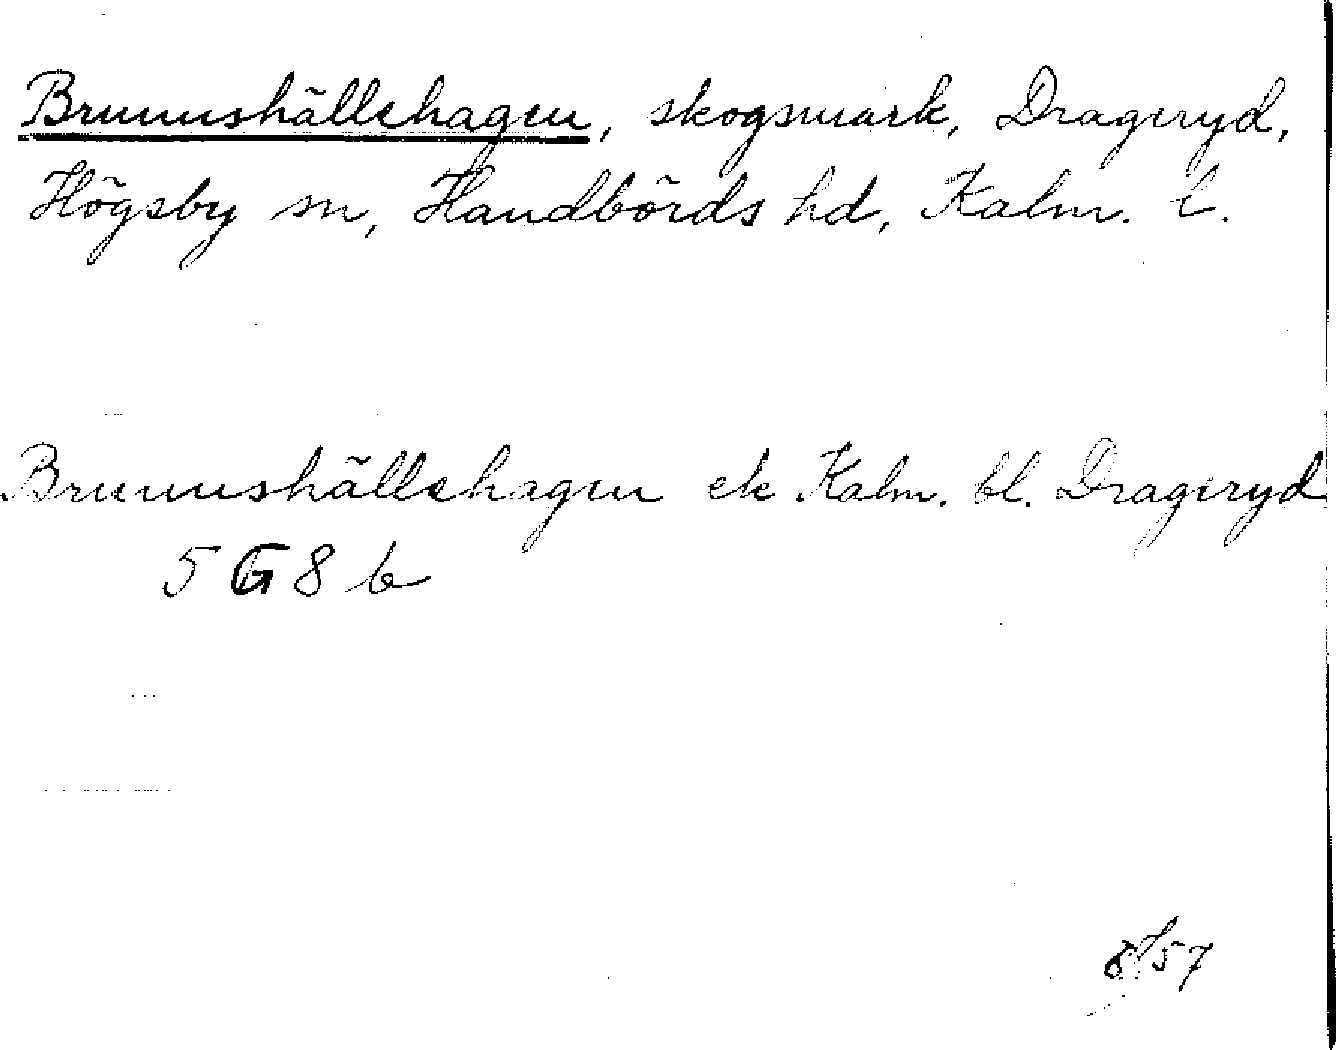 Brunnshällehagen, skogsmark, Drageryd,
Högsby sn, Handbörds hd, Kalm. l.
Brunnshällehagen ek Kalm. bl. Drageryd
5 G 8 b